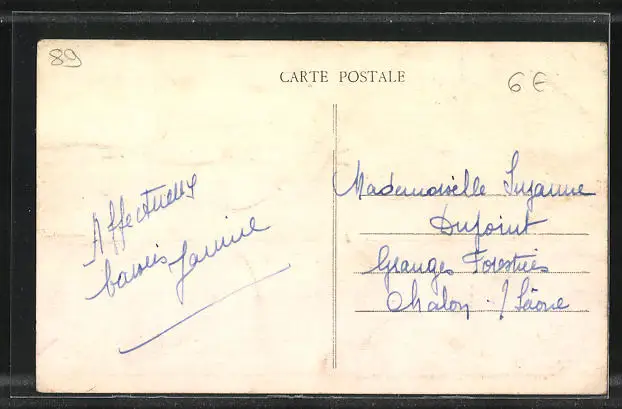 89
CARTE POSTALE
6 €
Affectueux
baisers Janine
Mademoiselle Suzanne
Dupoint
Granges Forestiers
Chalon s/ Saône